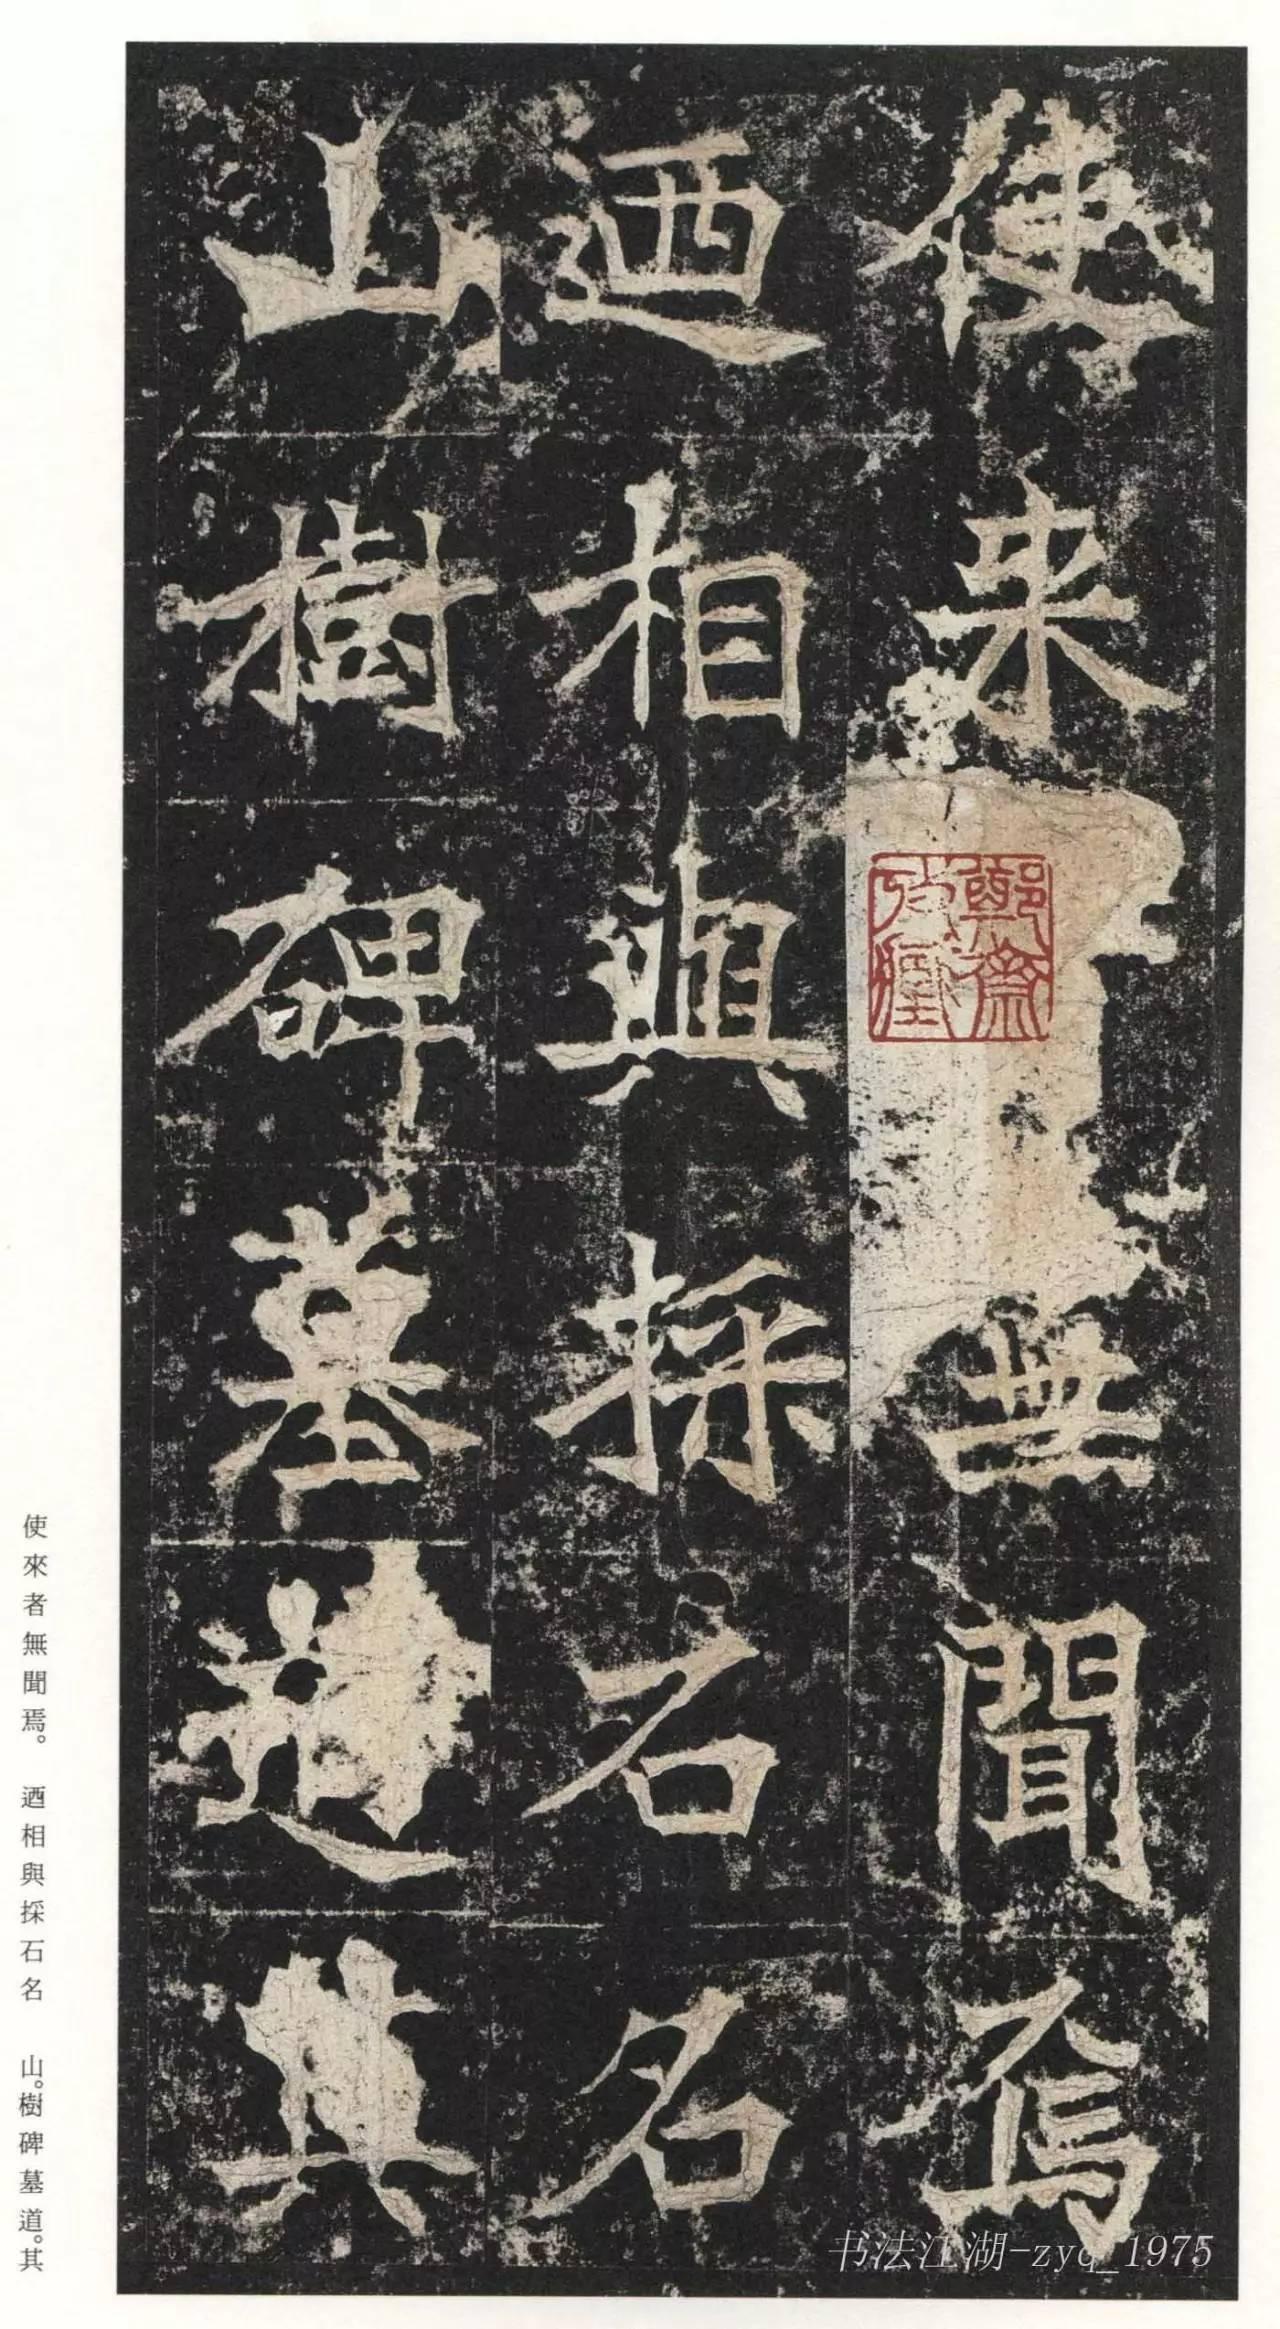 使来無聞焉
迺相與採石名
山樹碑墓道其
使來者無聞焉。 迺相與採石名 山。樹碑墓道。其
书法江湖-zyq_1975